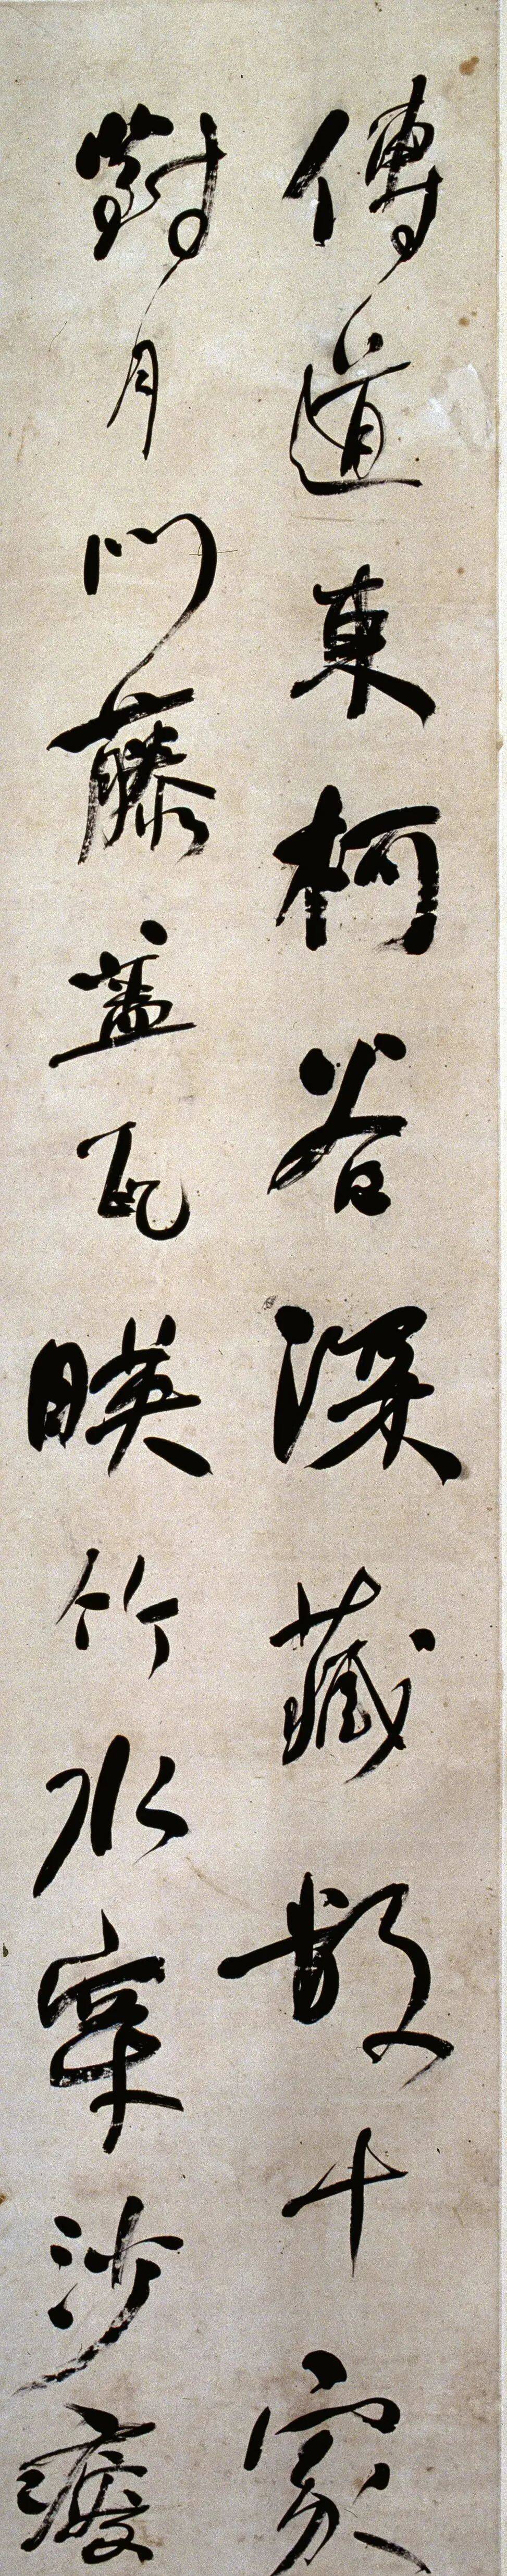 傳道東柯谷深藏數十家
對月門藤蓋瓦暎竹水穿沙瘦